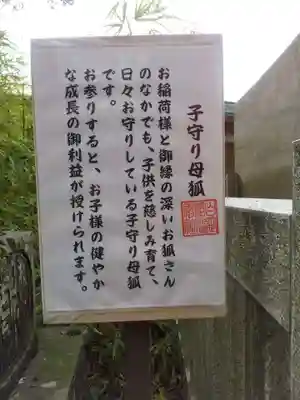 子守り母狐
お稲荷様と御縁の深いお狐さん
のなかでも、子供を慈しみ育て、
日々お守りしている子守り母狐
です。
お参りすると、お子様の健やか
な成長の御利益が授けられます。